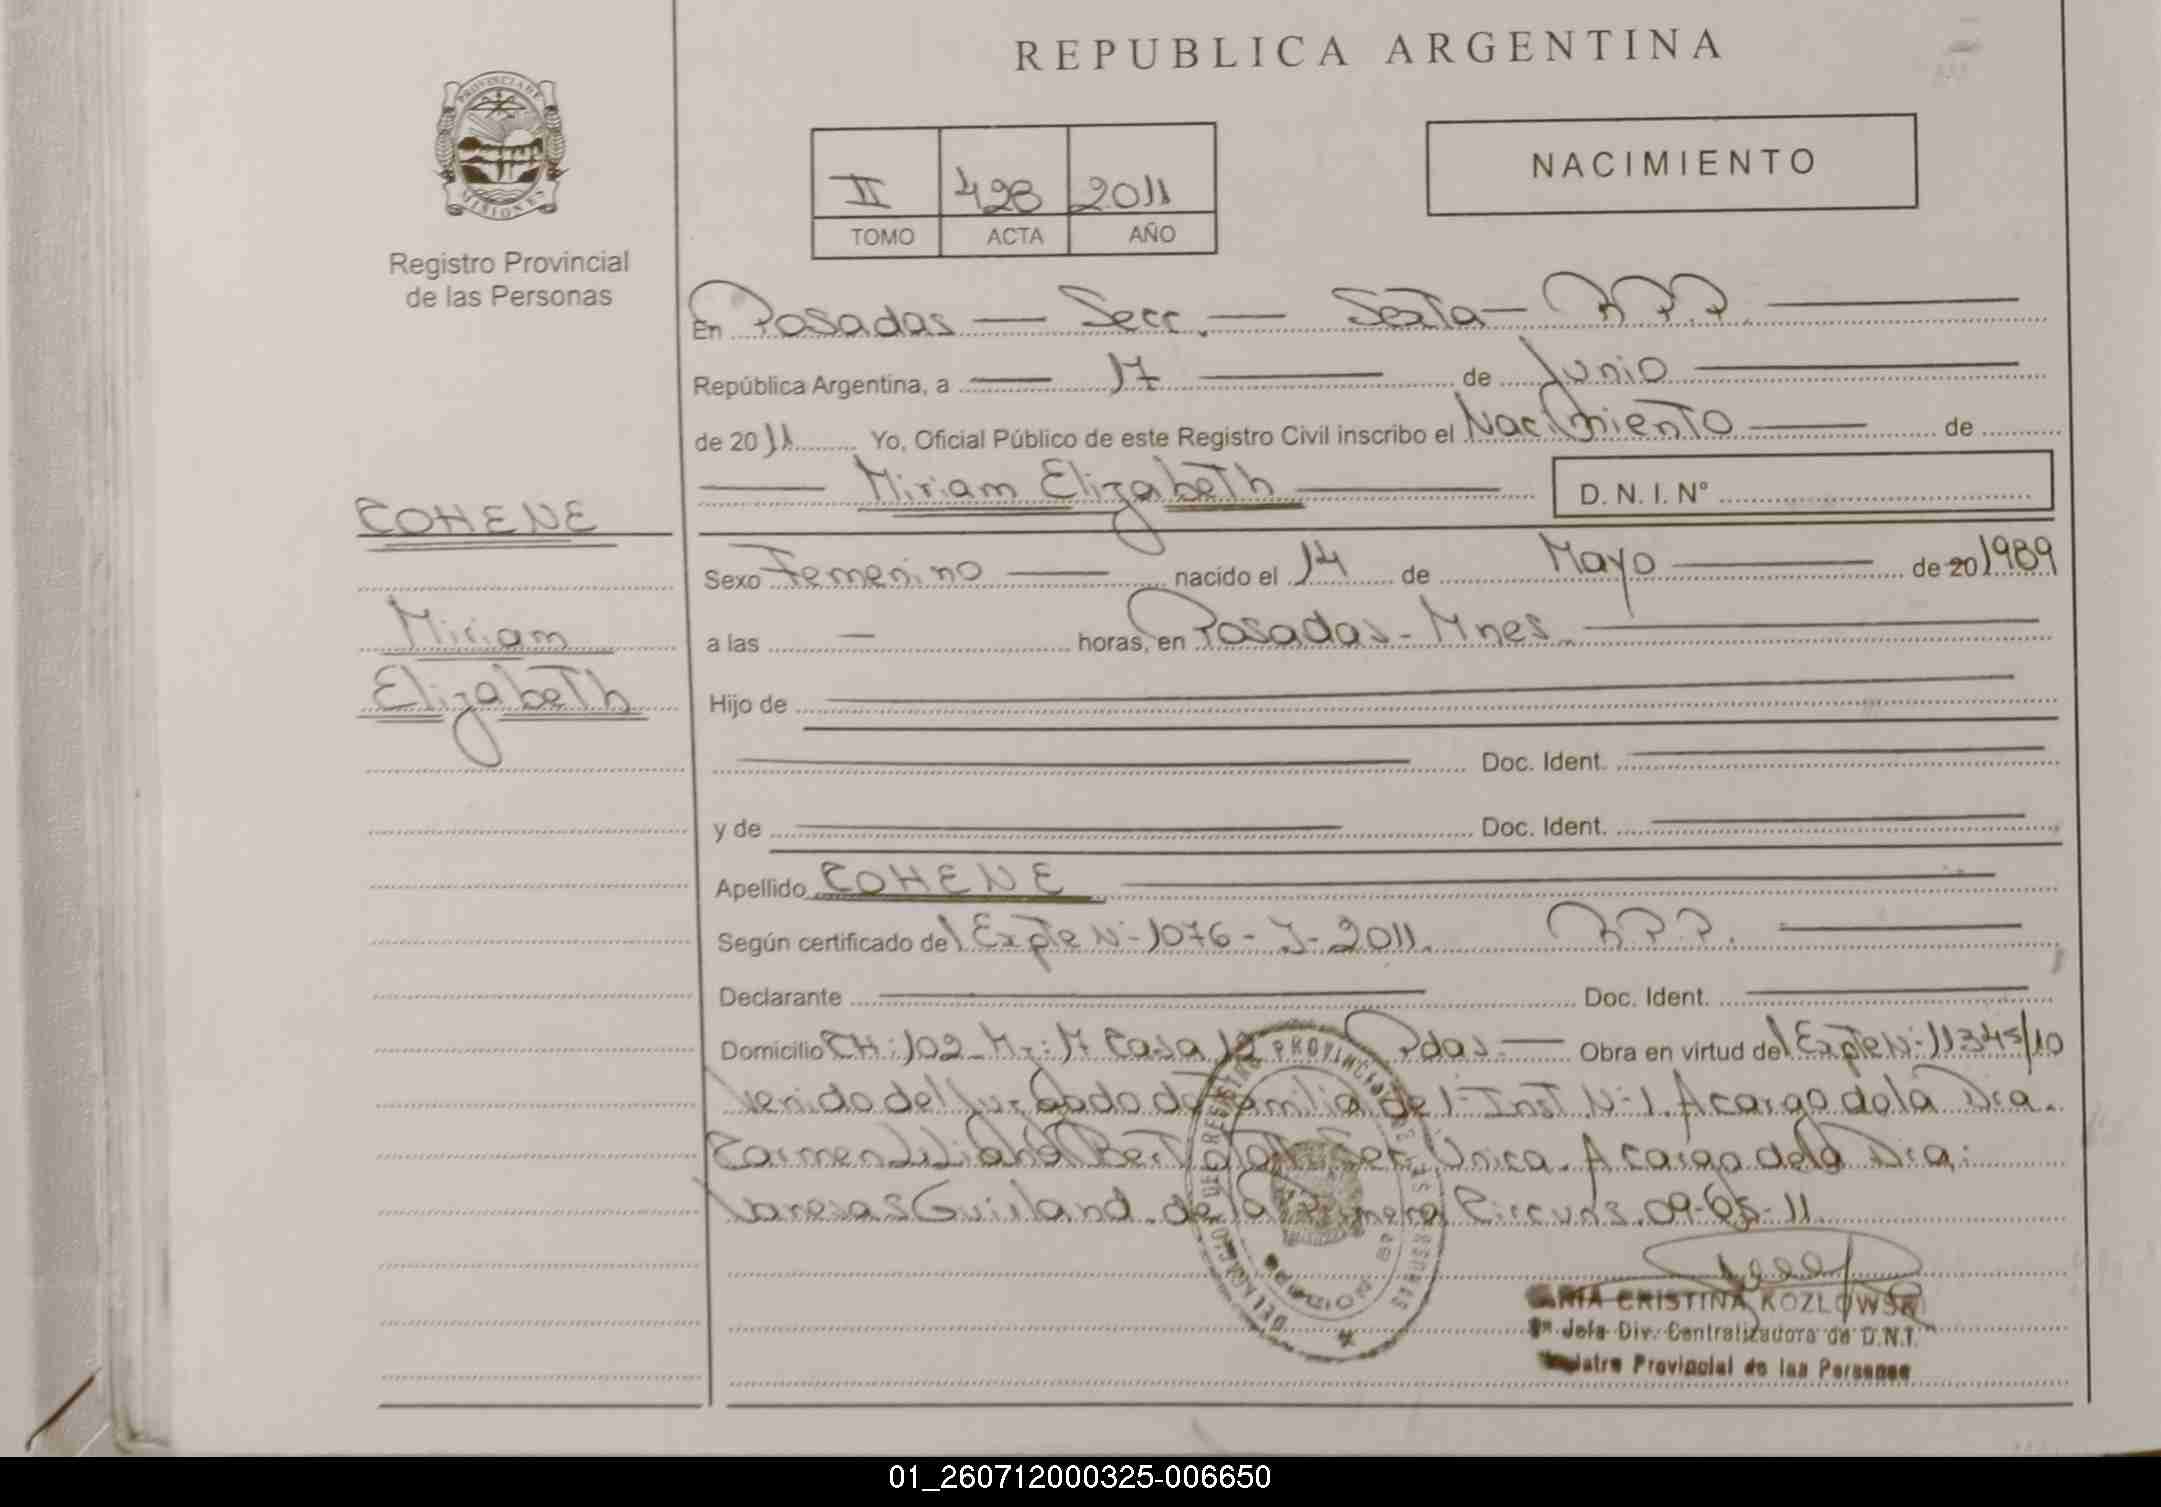 REPUBLICA ARGENTINA
PROVINCIA DE
MISIONES
Registro Provincial
de las Personas
II 428 2011
TOMO ACTA AÑO
NACIMIENTO
En Posadas — Secc. — Sexta — R.P.P.
República Argentina, a — 17 — de Junio
de 2011 Yo, Oficial Público de este Registro Civil inscribo el Nacimiento — de
— Miriam Elizabeth — D. N. I. Nº
COHENE
Miriam
Elizabeth
Sexo Femenino — nacido el 14 de Mayo — de 20 1989
a las — horas, en Posadas - Mnes
Hijo de
Doc. Ident.
y de Doc. Ident.
Apellido COHENE
Según certificado del Expte N- 1076 - J - 2011. R.P.P.
Declarante Doc. Ident.
Domicilio CH: 102 - Mz: 17 Casa 12 Pdas. — Obra en virtud del Expte N- 11345/10
venido del Juzgado de Familia de 1- Inst N- 1. A cargo de la Dra.
Carmen Liliana Única. A cargo de la Dra:
de la Primera Circuns. 09-05-11
CRISTINA KOZLOWSKI
Jefa Div. Centralizadora de D.N.I.
Provincial de las Personas
01_260712000325-006650